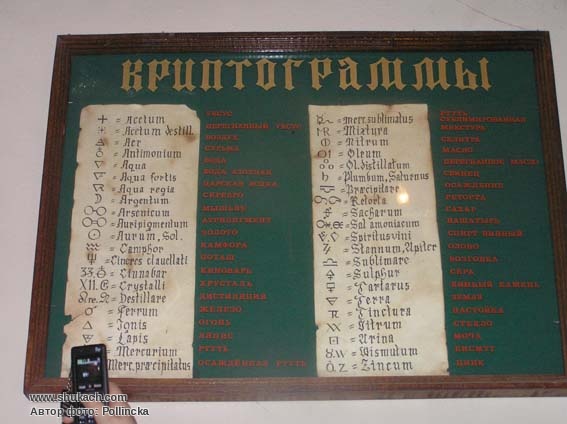 КРИПТОГРАММЫ
= Acetum
= Acetum destill.
= Aer
= Antimonium
= Aqua
= Aqua fortis
= Aqua regia
= Argentum
= Arsenicum
= Auripigmentum
= Aurum, Sol.
= Camphor
= Cineres clavellati
= Cinnabar
= Crystalli
= Destillare
= Ferrum
= Ignis
= Lapis
= Mercurium
Merc. præcipitatus
УКСУС
ПЕРЕГНАННЫЙ УКСУС
ВОЗДУХ
СУРЬМА
ВОДА
ВОДА КРЕПКАЯ
ЦАРСКАЯ ВОДКА
СЕРЕБРО
МЫШЬЯК
АУРИПИГМЕНТ
ЗОЛОТО
КАМФОРА
ПОТАШ
КИНОВАРЬ
ХРУСТАЛЬ
ДИСТИЛЛЯЦИЯ
ЖЕЛЕЗО
ОГОНЬ
РТУТЬ
ОСАЖДЁННАЯ РТУТЬ
= Merc. sublimatus
= Mixtura
= Nitrum
= Oleum
= Ol. distillatum
= Plumbum, Saturnus
= Præcipitare
= Retorta
= Sacharum
= Sal amoniacum
= Spiritus vini
= Stannum, Jupiter
= Sublimare
= Sulphur
= Tartarus
= Terra
= Tinctura
= Vitrum
= Urina
= Wismutum
= Zincum
РТУТЬ
СУБЛИМИРОВАННАЯ
МИКСТУРА
СЕЛИТРА
МАСЛО
ПЕРЕГНАННОЕ МАСЛО
СВИНЕЦ
ОСАЖДЕНИЕ
РЕТОРТА
САХАР
НАШАТЫРЬ
СПИРТ ВИННЫЙ
ОЛОВО
ВОЗГОНКА
СЕРА
ВИННЫЙ КАМЕНЬ
ЗЕМЛЯ
НАСТОЙКА
СТЕКЛО
МОЧА
ВИСМУТ
ЦИНК
www.shukach.com
Автор фото: Pollincka